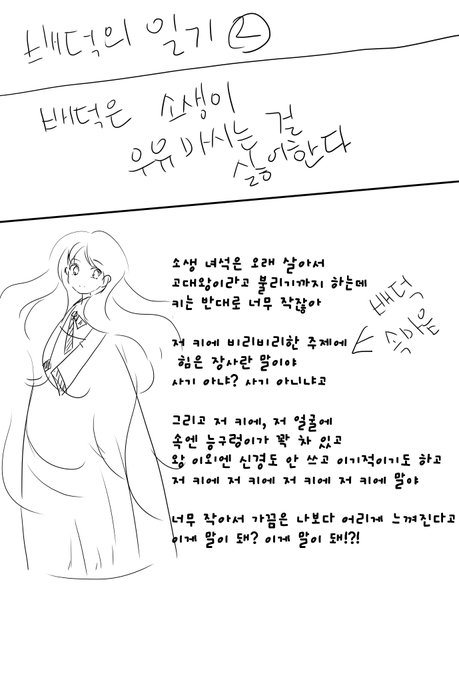 배덕의 일기 2
배덕은 소생이
우유 마시는 걸
싫어한다
소생 녀석은 오래 살아서
고대왕이라고 불리기까지 하는데
키는 반대로 너무 작잖아
배덕
속마음
저 키에 비리비리한 주제에
힘은 장사란 말이야
사기 아냐? 사기 아니냐고
그리고 저 키에, 저 얼굴에
속엔 능구렁이가 꽉 차 있고
왕 이외엔 신경도 안 쓰고 이기적이기도 하고
저 키에 저 키에 저 키에 저 키에 말야
너무 작아서 가끔은 나보다 어리게 느껴진다고
이게 말이 돼? 이게 말이 돼!?!